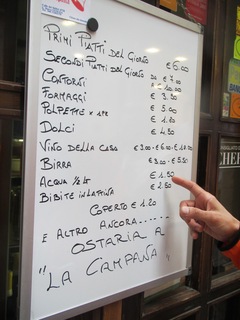 PRIMI PIATTI DEL GIORNO € 6.00
SECONDI PIATTI DEL GIORNO DA € 7.00
CONTORNI € 3.50
FORMAGGI € 5.00
POLPETTE X 1PZ € 1.20
DOLCI € 4.50
VINO DELLA CASA € 3.00 - € 6.00 - € 12.00
BIRRA € 3.00 - € 5.50
ACQUA 1/2 LT € 1.50
BIBITE IN LATTINA € 2.50
COPERTO € 1.20
E ALTRO ANCORA......
OSTARIA A
"LA CAMPANA"